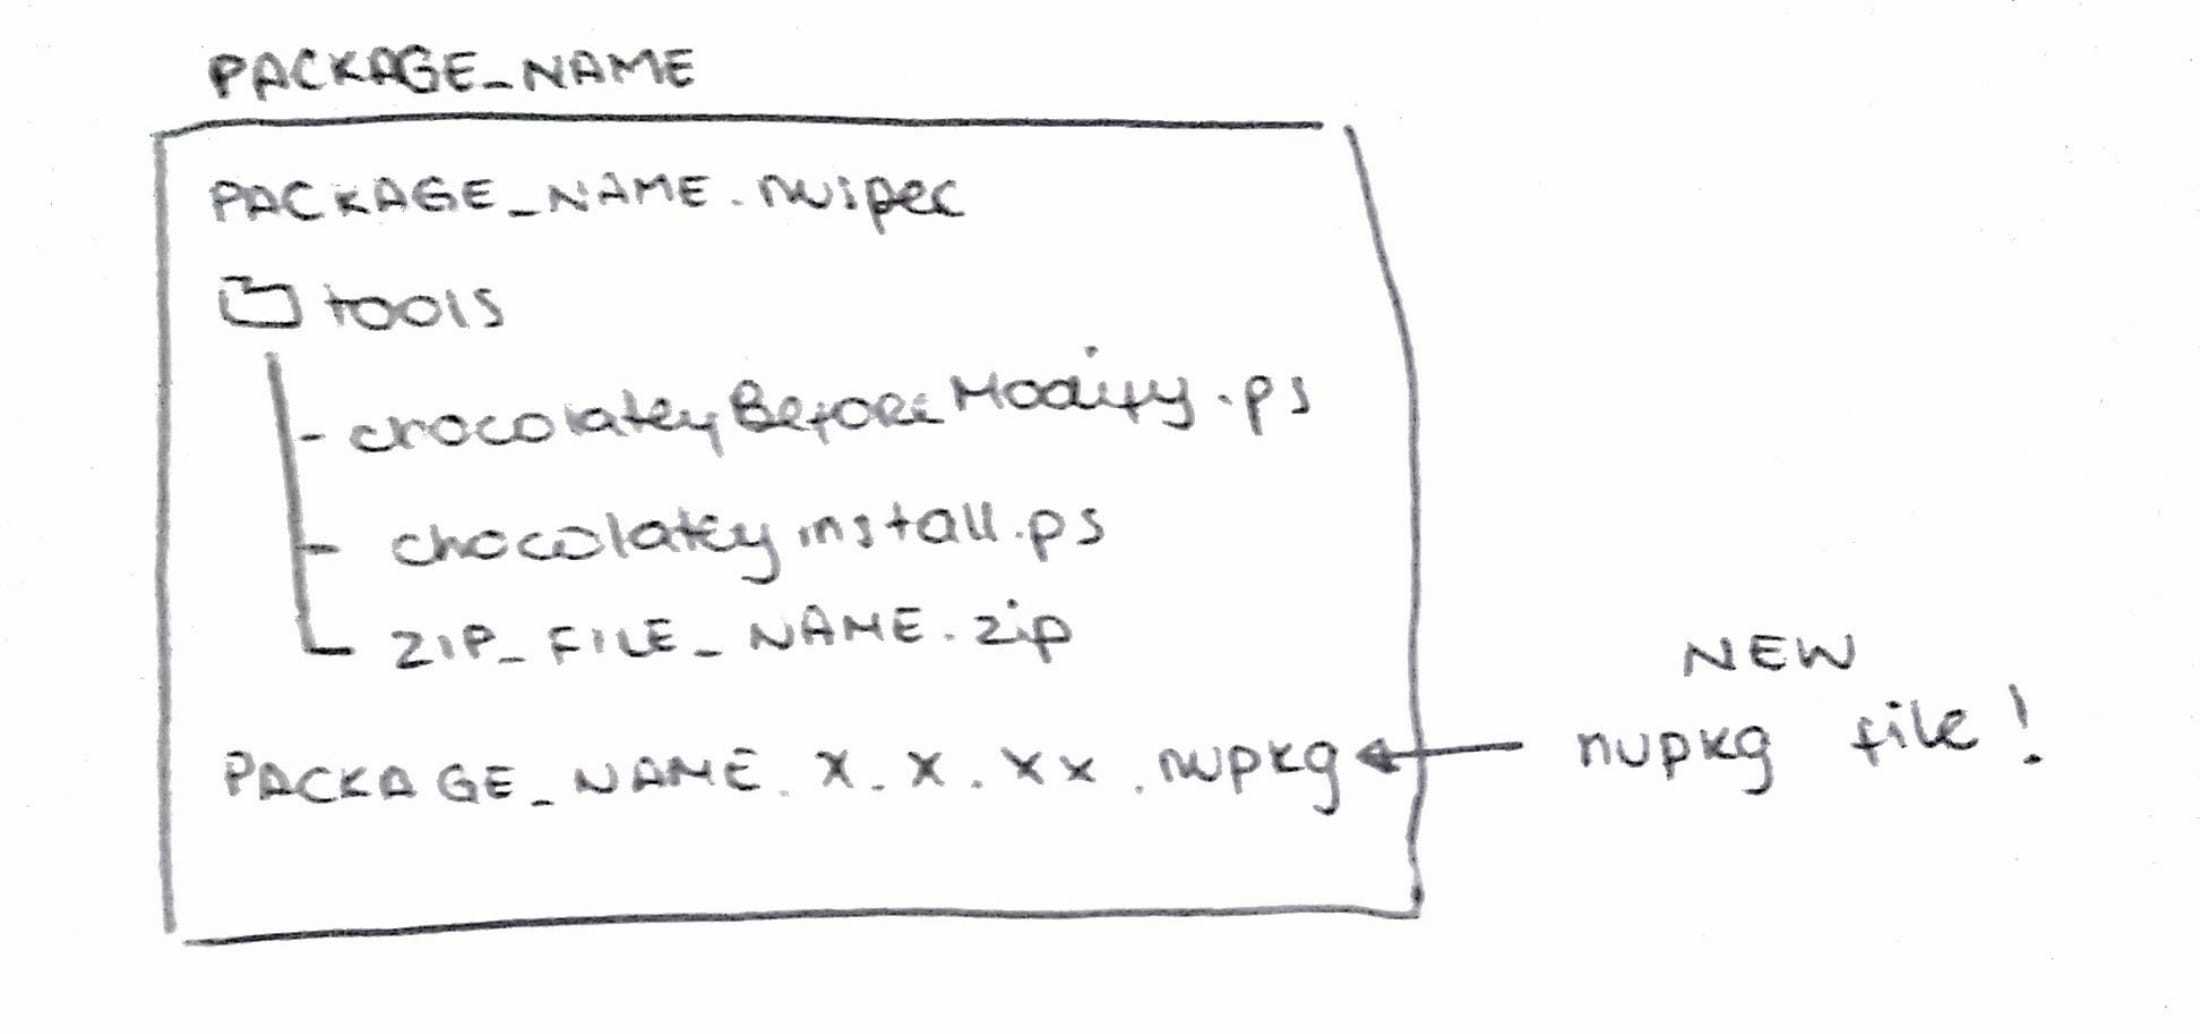 PACKAGE_NAME
PACKAGE_NAME.nuspec
tools
chocolateyBeforeModify.ps
chocolateyinstall.ps
ZIP_FILE_NAME.zip
PACKAGE_NAME.x.x.xx.nupkg
NEW
nupkg file!